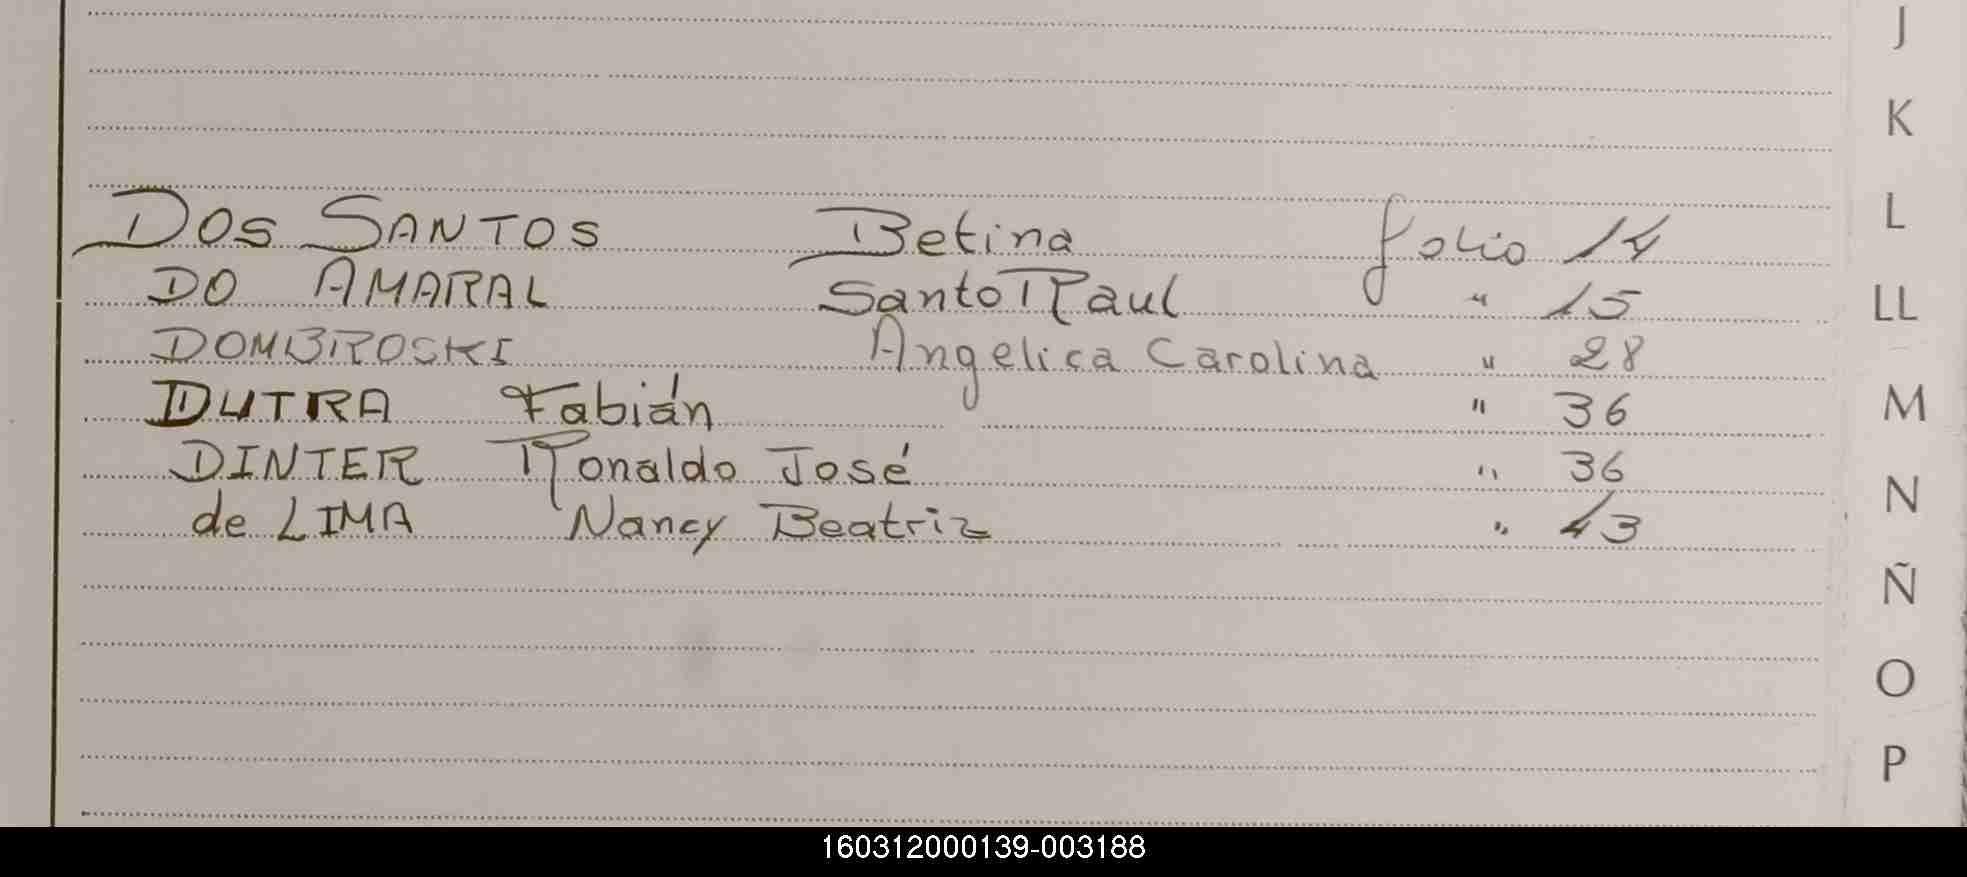 J
K
L
DOS SANTOS Betina folio 14
DO AMARAL Santo Raul " 15
LL
DOMBROSKI Angelica Carolina " 28
DUTRA Fabián " 36
M
DINTER Ronaldo José " 36
N
de LIMA Nancy Beatriz " 43
Ñ
O
P
160312000139-003188